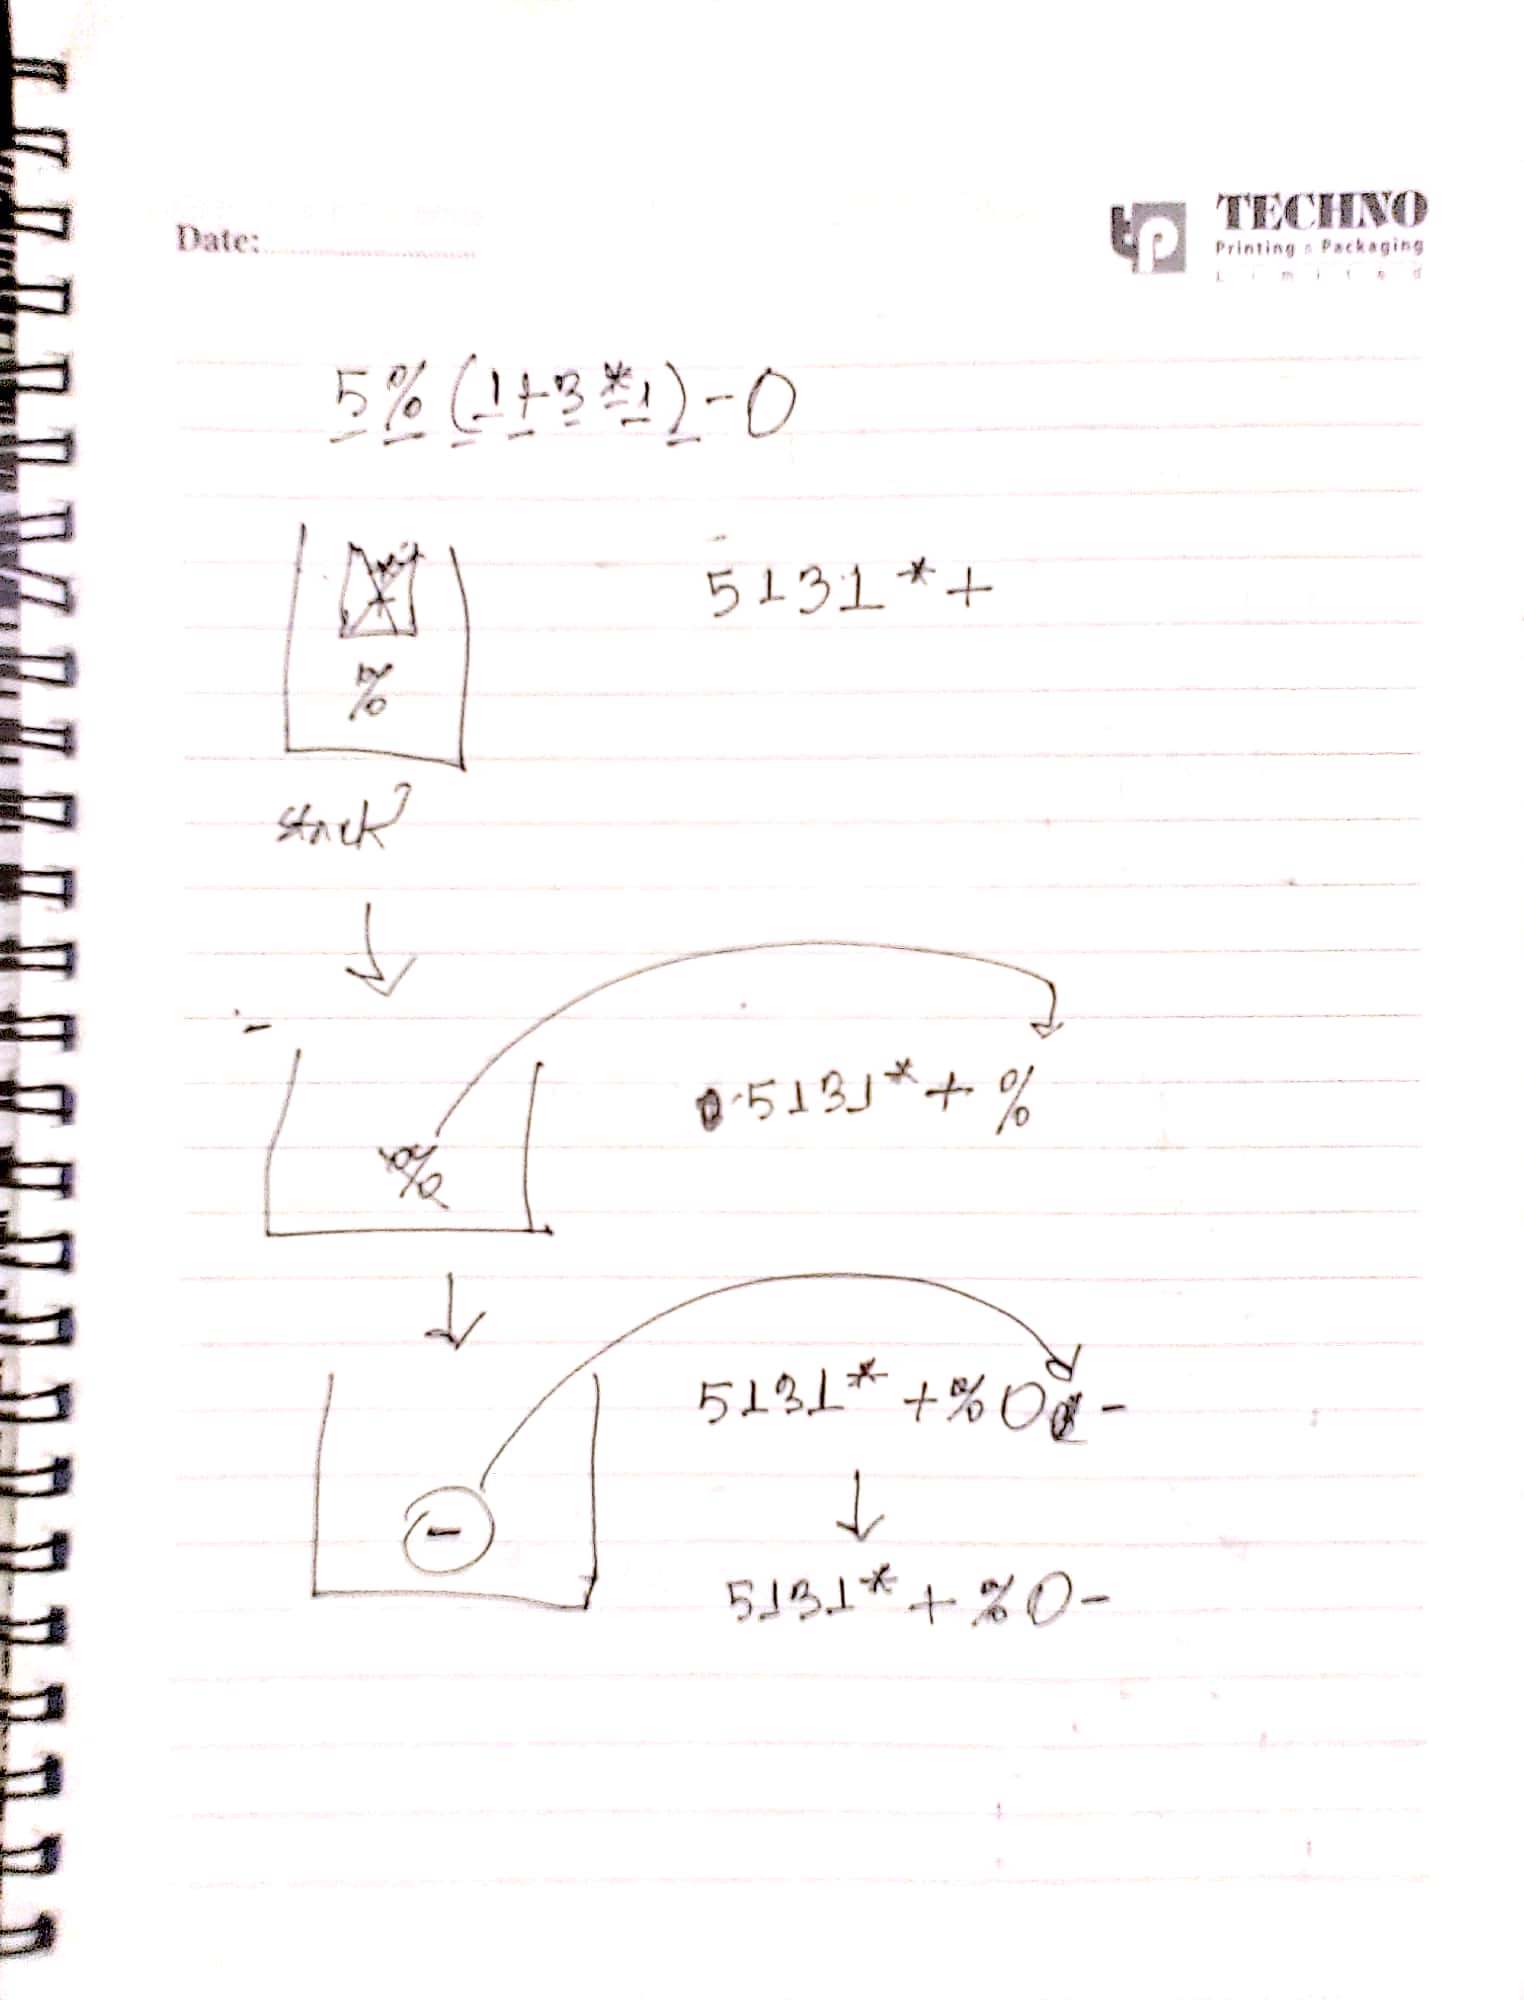 Date:
TECHNO
Printing & Packaging
Limited
5%(1+3*1)-0
5131*+
%
stack
-
5131*+%
%
5131*+%0-
-
5131*+%0-